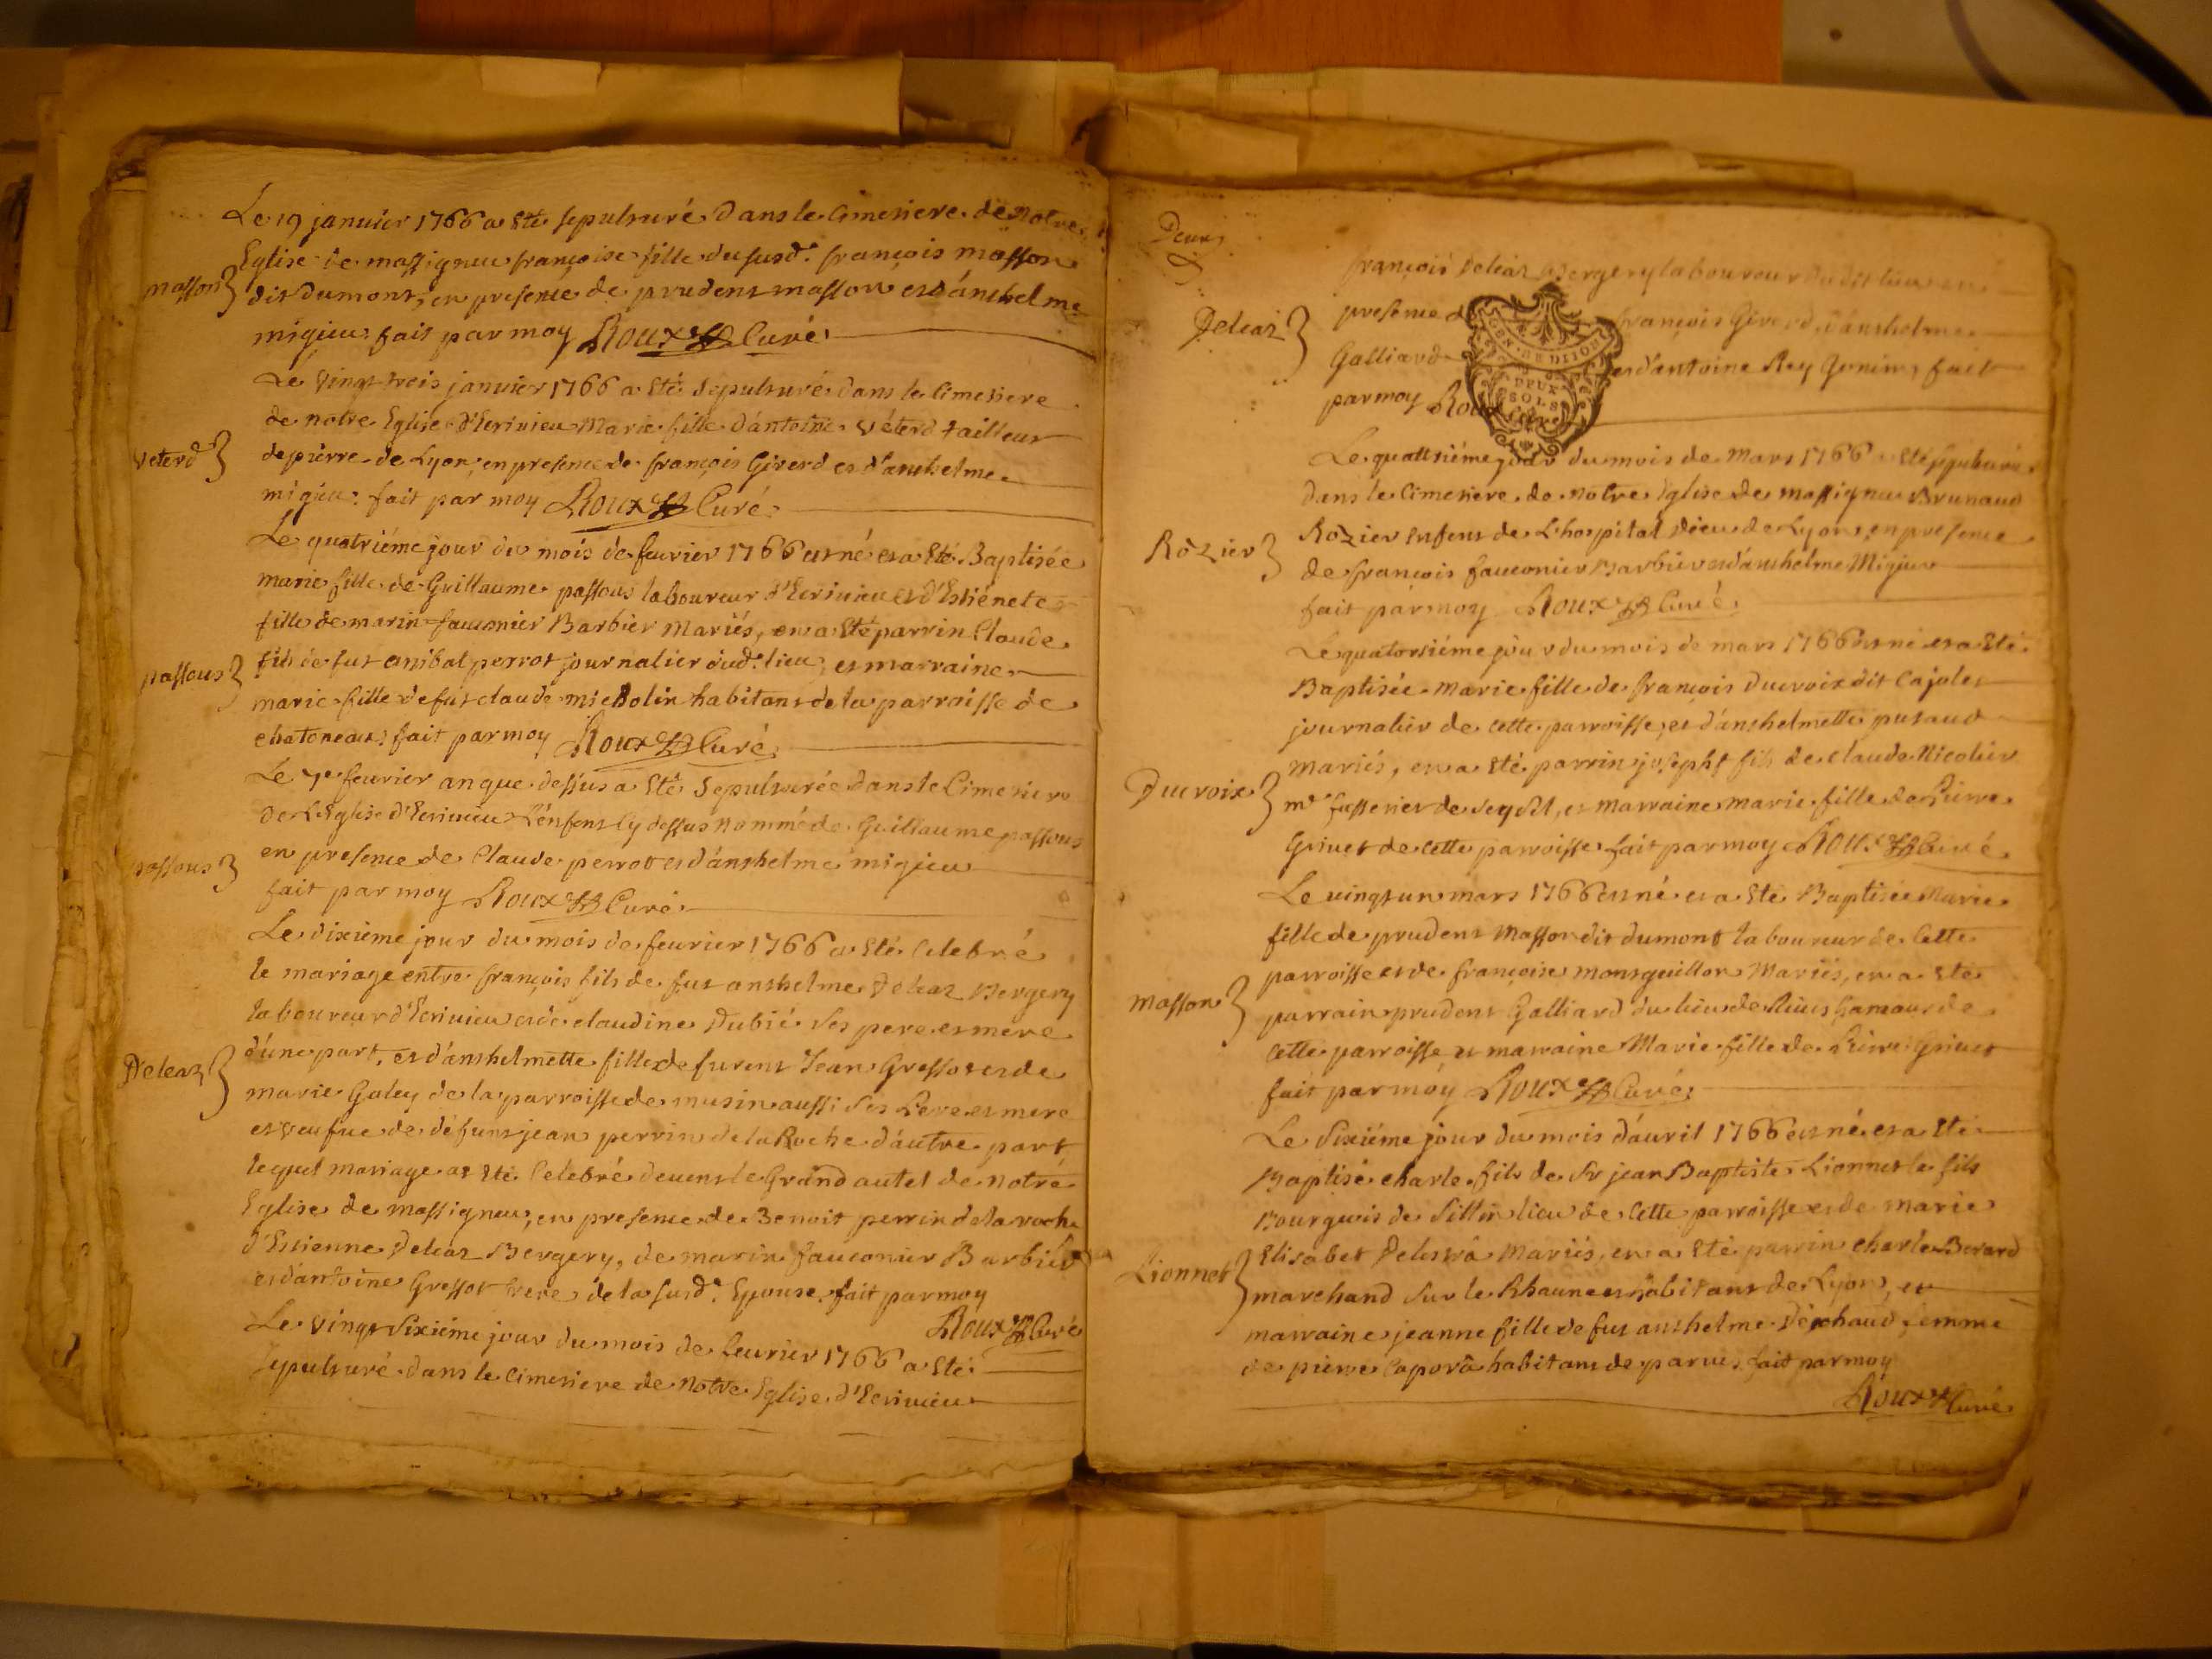 Le 19 janvier 1766 a eté sepulturé dans le cimetiere de notre
Eglise de massignieu françoise fille du susd. françois masson
masson
dit Dumont, en presence de prudent masson et d'anthelme
migieu fait par moy Roux Curé
Le vingt trois janvier 1766 a eté sepulturé dans le cimetiere
de notre Eglise d'Ecrivieu Marie fille d'antoine véterd tailleur
veterd
de pierre de Lyon, en presence de françois Giverd et d'anthelme
migieu: fait par moy Roux Curé
Le quatriéme jour du mois de fevrier 1766 est né et a eté Baptisée
marie fille de Guillaume passous laboureur d'Ecrivieu et d'Estiénete
fille de marin fauconier Barbier Mariés, en a eté parrin Claude
passous
fils de fut annibal perrot journalier dud. lieu, et marraine
marie fille de fut claude micholin habitant de la parroisse de
chatoneau: fait par moy Roux Curé
Le 7e fevrier an que dessus a eté sepulturée dans le Cimetiere
de L'Eglise d'Ecrivieu L'enfent cy dessus nommé de Guillaume passous
passous
en presence de Claude perrot et d'anthelme migieu
fait par moy Roux Curé
Le dixieme jour du mois de fevrier 1766 a eté Celebré
le mariage entre françois fils de fut anthelme Deleaz Bergery
laboureur d'Ecrivieu et de claudine Dubié ses pere et mere
d'une part, et d'anthelmette fille de furent Jean Gressot et de
Deleaz
marie Galey de la parroisse de musin aussi ses Pere et mere
et veufue de défunt jean perrin de la Roche d'autre part
lequel mariage at eté Celebré devent le Grand autel de notre
Eglise de massignieu, en presence de Benoit perrin de la roche
d'Estienne Deleaz Bergery, de marin fauconier Barbier
et d'antoine Gressot frere de la susd. Epouse. fait par moy
Roux Curé
Le vingt sixiéme jour du mois de fevrier 1766 a eté
sepulturé dans le cimetiere de notre Eglise d'Ecrivieu
Deux
françois Deleaz Bergery laboureur dudit lieu en
Deleaz
presence françois Giverd d'anthelme
Galliard et d'antoine Rey Genin, fait
GEN
DEUX
SOLS
par moy Roux Curé
Le quattriéme jour du mois de Mars 1766 a eté sepulturé
dans le Cimetiere de notre Eglise de massignieu Brunaud
Rozier
Rozier enfent de L'hospital Dieu de Lyon, en presence
de françois fauconier Barbier et d'anthelme Migieu
fait par moy Roux Curé
Le quatorsiéme jour du mois de mars 1766 est né et a eté
Baptisée marie fille de françois Ducroix dit Cajolet
journalier de cette parroisse, et d'anthelmette putaud
mariés, en a eté parrin josepht fils de claude Nicolier
Ducroix
me de Seyssel, et marraine marie fille de Pierre
Grivet de cette parroisse fait par moy Roux Curé
Le vingt un mars 1766 est né et a eté Baptisée Marie
fille de prudent Masson dit dumont laboureur de Cette
parroisse et de françoise montguillon Mariés, en a eté
masson
parrain prudent Galliard du lieu de hameau de
Cette parroisse et marraine Marie fille de Pierre Grivet
fait par moy Roux Curé
Le Sixiéme jour du mois d'avril 1766 est né et a eté
Baptisé charle fils de Sr jean Baptiste Lionnet le fils
Bourgeois de Sillin lieu de Cette parroisse et de marie
Elisabet Delestra Mariés, en a eté parrin charle Berard
Lionnet
marchand sur le Rhaune et habitant de Lyon, et
marraine jeanne fille de fut anthelme Déchaud femme
de pierre Caporà habitant de parves. fait par moy
Roux Curé